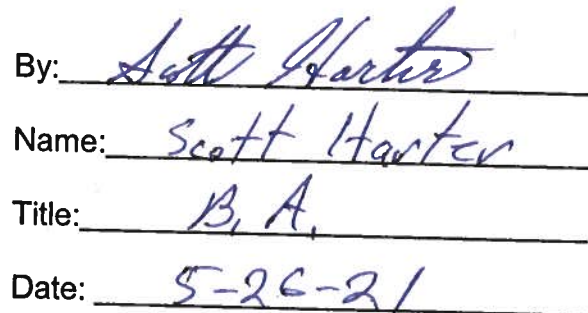 By: Scott Harter
Name: Scott Harter
Title: B. A.
Date: 5-26-21